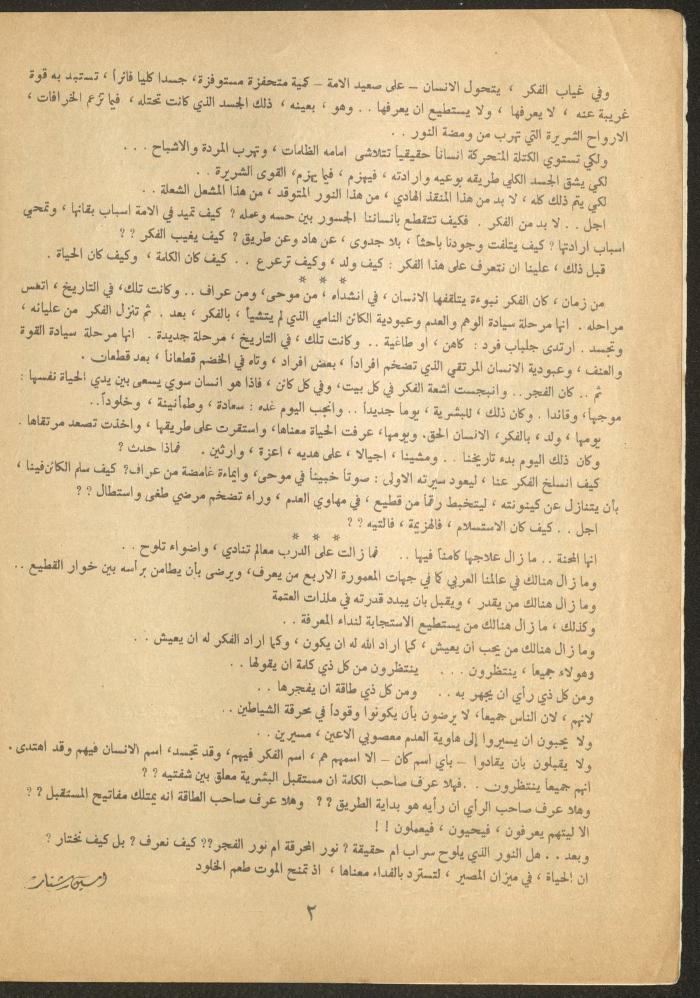 وفي غياب الفكر ، يتحول الانسان — على صعيد الامة — كمية متحفزة مستوفزة، جسدا كليا فائراً ، تستبد به قوة
غريبة عنه ، لا يعرفها ، ولا يستطيع ان يعرفها . . وهو ، بعينه ، ذلك الجسد الذي كانت تحتله ، فيما تزعم الخرافات ،
الارواح الشريرة التي تهرب من ومضة النور . .
ولكي تستوي الكتلة المتحركة انساناً حقيقياً تتلاشى امامه الظلمات ، وتهرب المردة والاشباح . . .
لكي يشق الجسد الكلي طريقه بوعيه وارادته ، فيهزم ، فيما يهزم، القوى الشريرة . .
لكي يتم ذلك كله ، لا بد من هذا المنقذ الهادي ، من هذا النور المتوقد ، من هذا المشعل الشعلة . .
اجل . . لا بد من الفكر . فكيف تتقطع بانساننا الجسور بين حسه وعمله ؟ كيف تميد في الامة اسباب بقائها ، وتمحي
اسباب ارادتها ؟ كيف يتلفت وجودنا باحثاً ، بلا جدوى ، عن هاد وعن طريق ؟ كيف يغيب الفكر ؟ ؟
قبل ذلك ، علينا ان نتعرف على هذا الفكر : كيف ولد ، وكيف ترعرع . . كيف كان الكلمة ، وكيف كان الحياة .
* * *
من زمان ، كان الفكر نبوءة يتلقفها الانسان ، في انشداه ، من موحى، ومن عراف . . وكانت تلك، في التاريخ ، اتعس
مراحله . انها مرحلة سيادة الوهم والعدم وعبودية الكائن النامي الذي لم يتشيأ ، بالفكر ، بعد . ثم تنزل الفكر من عليائه ،
وتجسد . ارتدى جلباب فرد : كاهن ، او طاغية . . وكانت تلك ، في التاريخ ، مرحلة جديدة . انها مرحلة سيادة القوة
والعنف ، وعبودية الانسان المرتقي الذي تضخم افراداً ، بعض افراد ، وتاه في الخضم قطعاناً ، بعد قطعان .
ثم . . كان الفجر . . وانبجست اشعة الفكر في كل بيت، وفي كل كائن ، فاذا هو انسان سوي يسعى بين يدي الحياة نفسها :
موجهاً، وقائدا . وكان ذلك ، للبشرية ، يوماً جديداً . . وانجب اليوم غده : سعادة ، وطمأنينة ، وخلوداً . .
يومها ، ولد ، بالفكر ، الانسان الحق. ويومها، عرفت الحياة معناها، واستقرت على طريقها ، واخذت تصعد مرتقاها .
وكان ذلك اليوم بدء تاريخنا . . ومشينا ، اجيالا ، على هديه ، اعزة ، وارثين . فماذا حدث ؟
كيف انسلخ الفكر عنا ، ليعود سيرته الاولى : صوتاً خبيئاً في موحى، وايماءة غامضة من عراف؟ كيف سلم الكائن فينا ،
بأن يتنازل عن كينونته ، ليتخبط رقماً من قطيع ، في مهاوي العدم ، وراء تضخم مرضي طغى واستطال ؟ ؟
اجل . . كيف كان الاستسلام ، فالهزيمة ، فالتيه ؟ ؟
* * *
انها المحنة . . ما زال علاجها كامناً فيها . . فما زالت على الدرب معالم تنادي ، واضواء تلوح . .
وما زال هنالك في عالمنا العربي كما في جهات المعمورة الاربع من يعرف، ويرضى بأن يطامن برأسه بين خوار القطيع . .
وما زال هنالك من يقدر ، ويقبل بأن يبدد قدرته في ملذات العتمة
وكذلك ، ما زال هنالك من يستطيع الاستجابة لنداء المعرفة . .
وما زال هنالك من يجب ان يعيش ، كما اراد الله له ان يكون ، وكما اراد الفكر له ان يعيش . .
وهولاء جميعاً ، ينتظرون . . . ينتظرون من كل ذي كلمة ان يقولها . .
ومن كل ذي رأي ان يجهر به . . ومن كل ذي طاقة ان يفجرها . .
لانهم ، لان الناس جميعاً، لا يرضون بأن يكونوا وقوداً في محرقة الشياطين . .
ولا يحبون ان يسيروا إلى هاوية العدم معصوبي الاعين ، مسيرين . .
ولا يقبلون بأن يقادوا — بأي اسم كان — الا اسمهم هم ، اسم الفكر فيهم، وقد تجسد، اسم الانسان فيهم وقد اهتدى .
انهم جميعاً ينتظرون . . فهلا عرف صاحب الكلمة ان مستقبل البشرية معلق بين شفتيه ؟ ؟
وهلا عرف صاحب الرأي ان رأيه هو بداية الطريق ؟ ؟ وهلا عرف صاحب الطاقة انه يمتلك مفاتيح المستقبل ؟ ؟
الا ليتهم يعرفون ، فيحيون ، فيعملون ! !
وبعد . . هل النور الذي يلوح سراب ام حقيقة ؟ نور المحرقة ام نور الفجر؟؟ كيف نعرف ؟ بل كيف نختار ؟
ان الحياة ، في ميزان المصير ، لتسترد بالفداء معناها ، اذ تمنح الموت طعم الخلود
امين شنار
٢